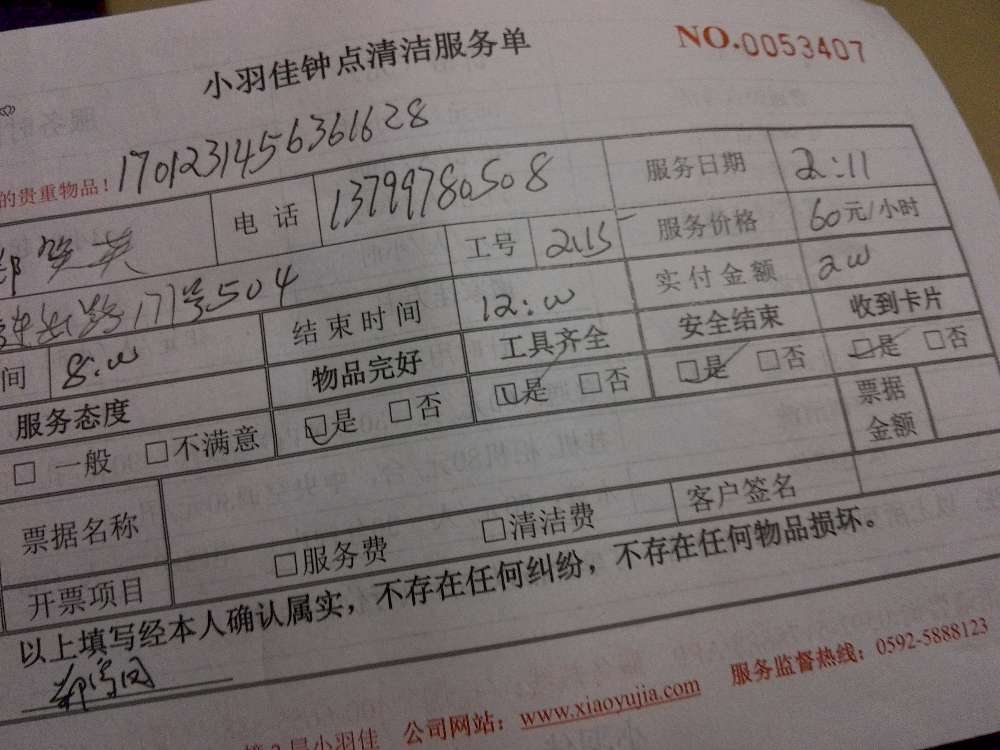 小羽佳钟点清洁服务单 NO.0053407
的贵重物品！ 1701231456361628
电话 13799780508 服务日期 2:11
工号 2115 服务价格 60元/小时
路171号504 结束时间 12:00 实付金额 200
间 8:00 物品完好 工具齐全 安全结束 收到卡片
服务态度 □是 □否 □是 □否 □是 □否 □是 □否
□ 一般 □不满意 票据金额
票据名称 客户签名
开票项目 □服务费 □清洁费
以上填写经本人确认属实，不存在任何纠纷，不存在任何物品损坏。
服务监督热线：0592-5888123
小羽佳 公司网站：www.xiaoyujia.com